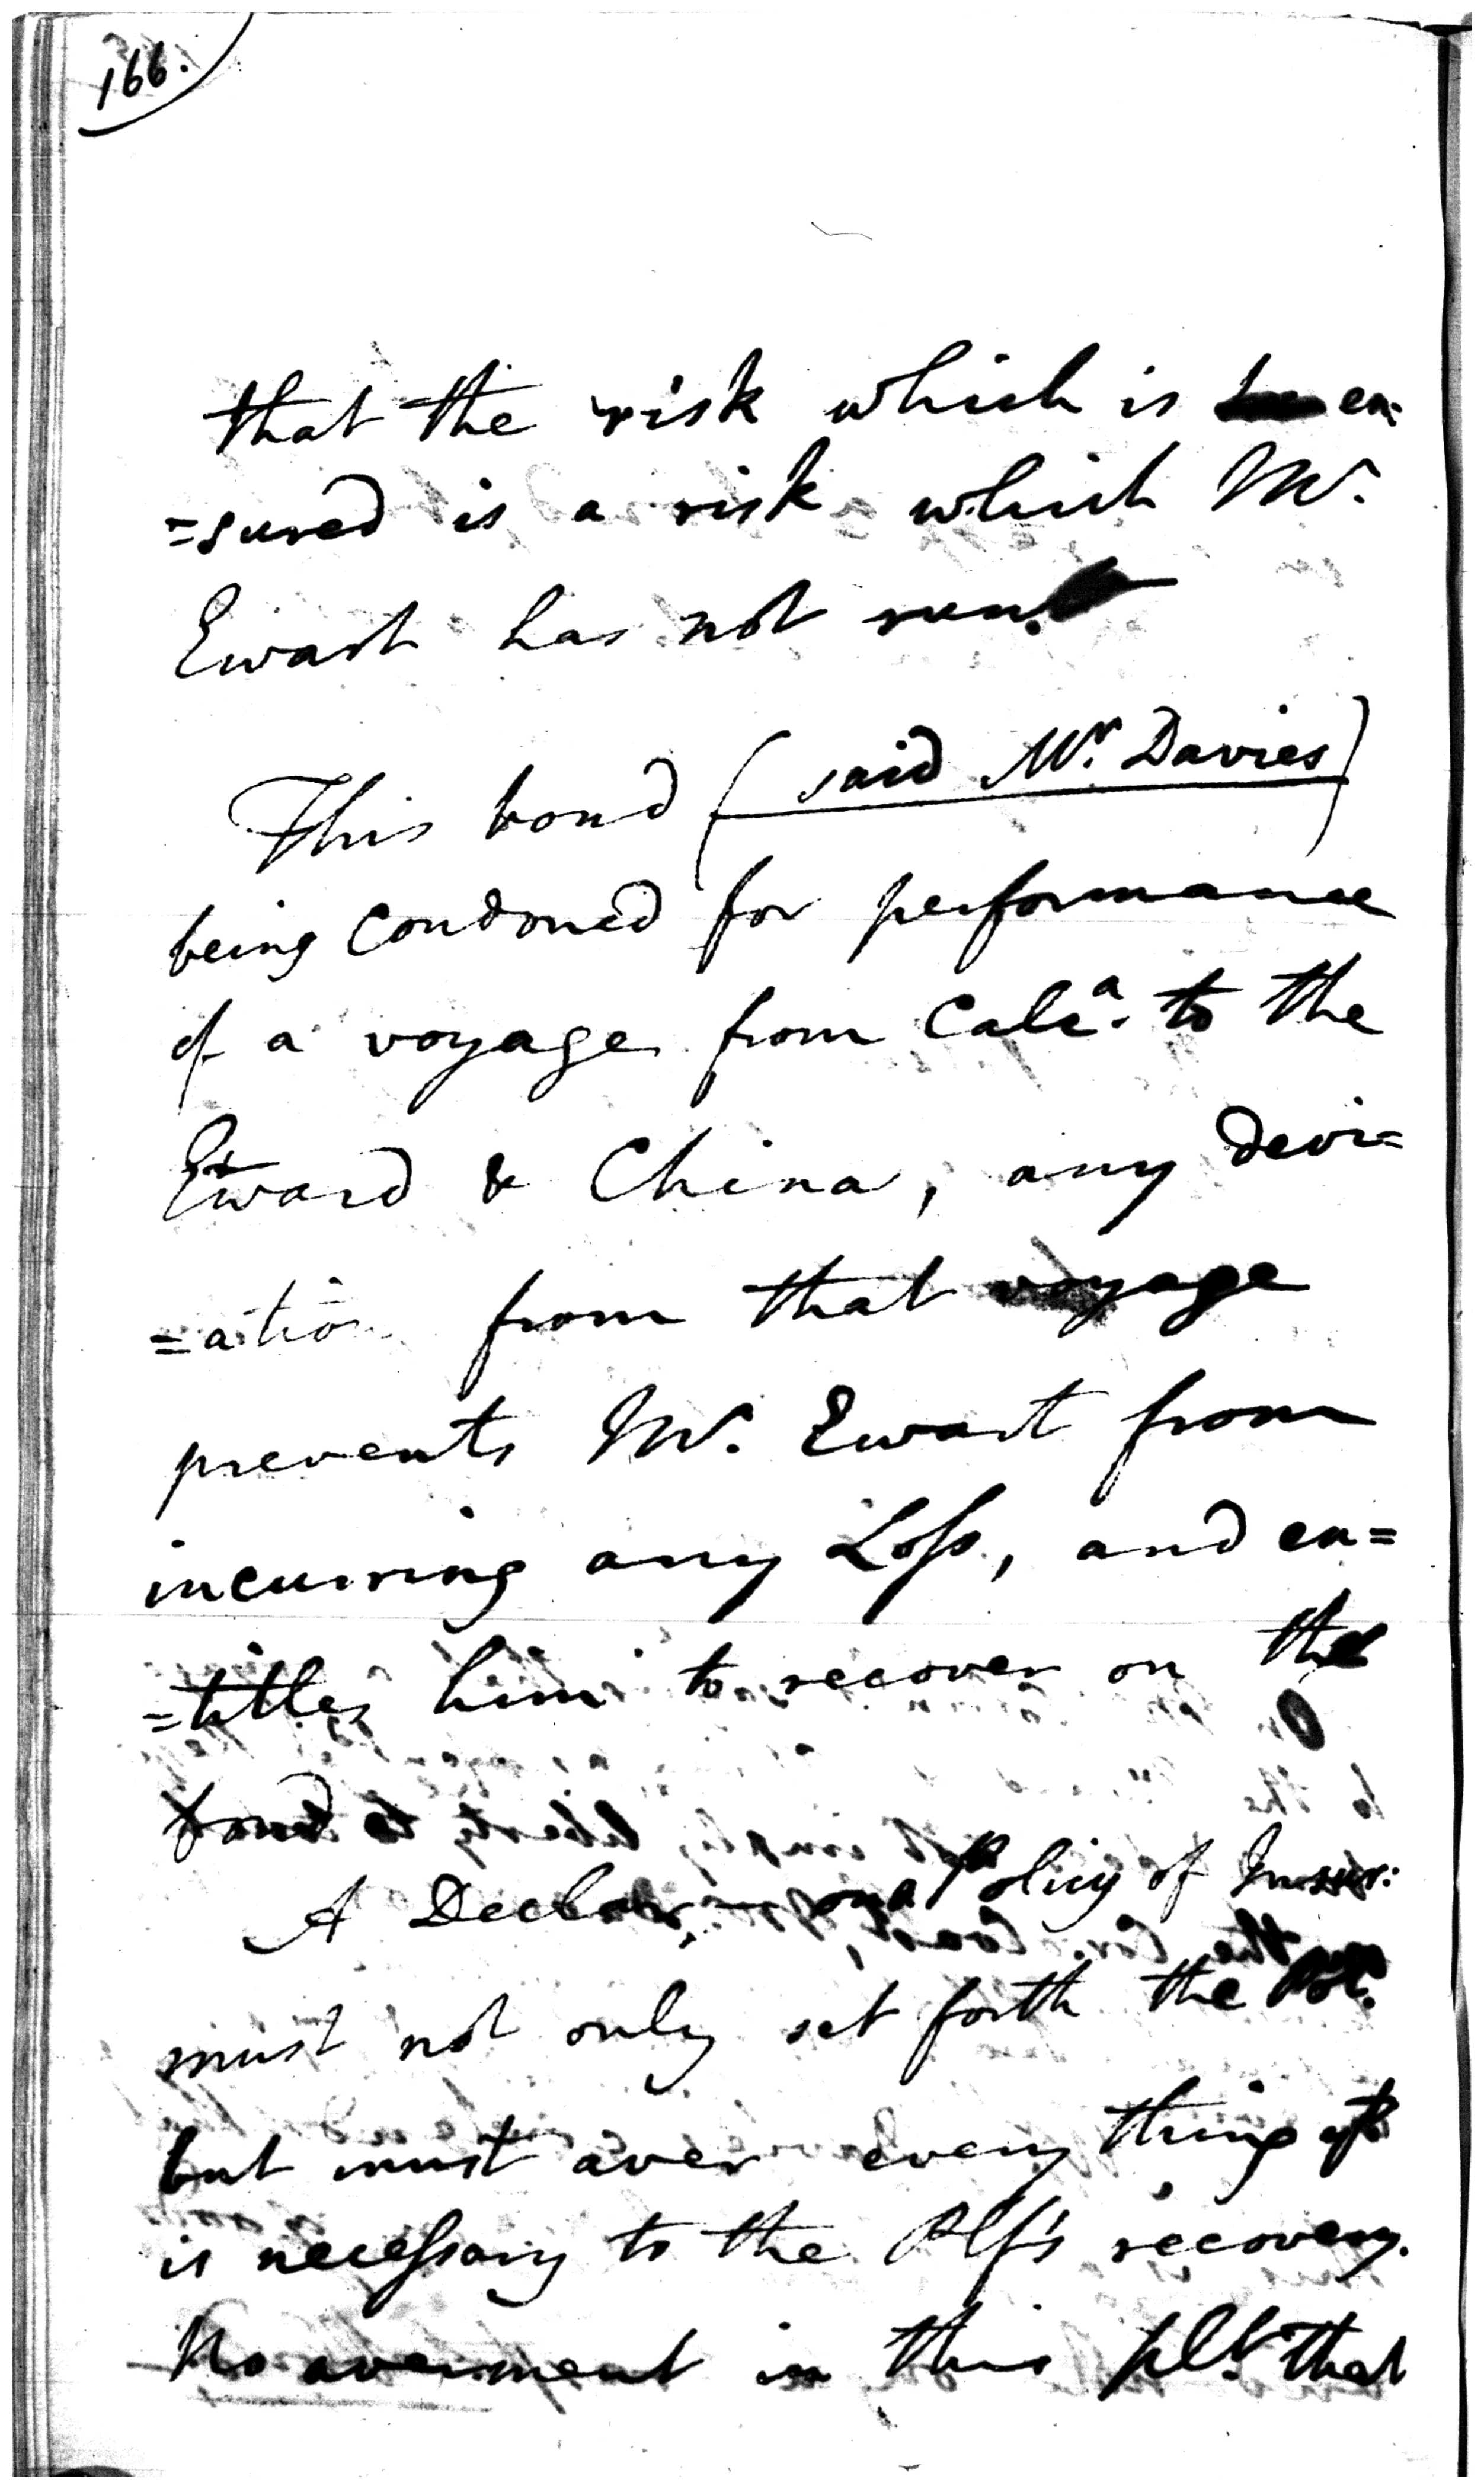 166.
that the risk which is en:
=sured is a risk which Mr.
Ewart has not run.
This bond (said Mr. Davies)
being condoned for performance
of a voyage from Calca. to the
Etward & China, any devi=
=ation from that voyage
prevents Mr. Ewart from
incurring any Loss, and en=
=titles him to recover on the
bond
A Declar, on a Policy of Insur:
must not only set forth the Pol.
but must aver every thing wh
is necessary to the Plf's recovery.
No averment in this plt. that